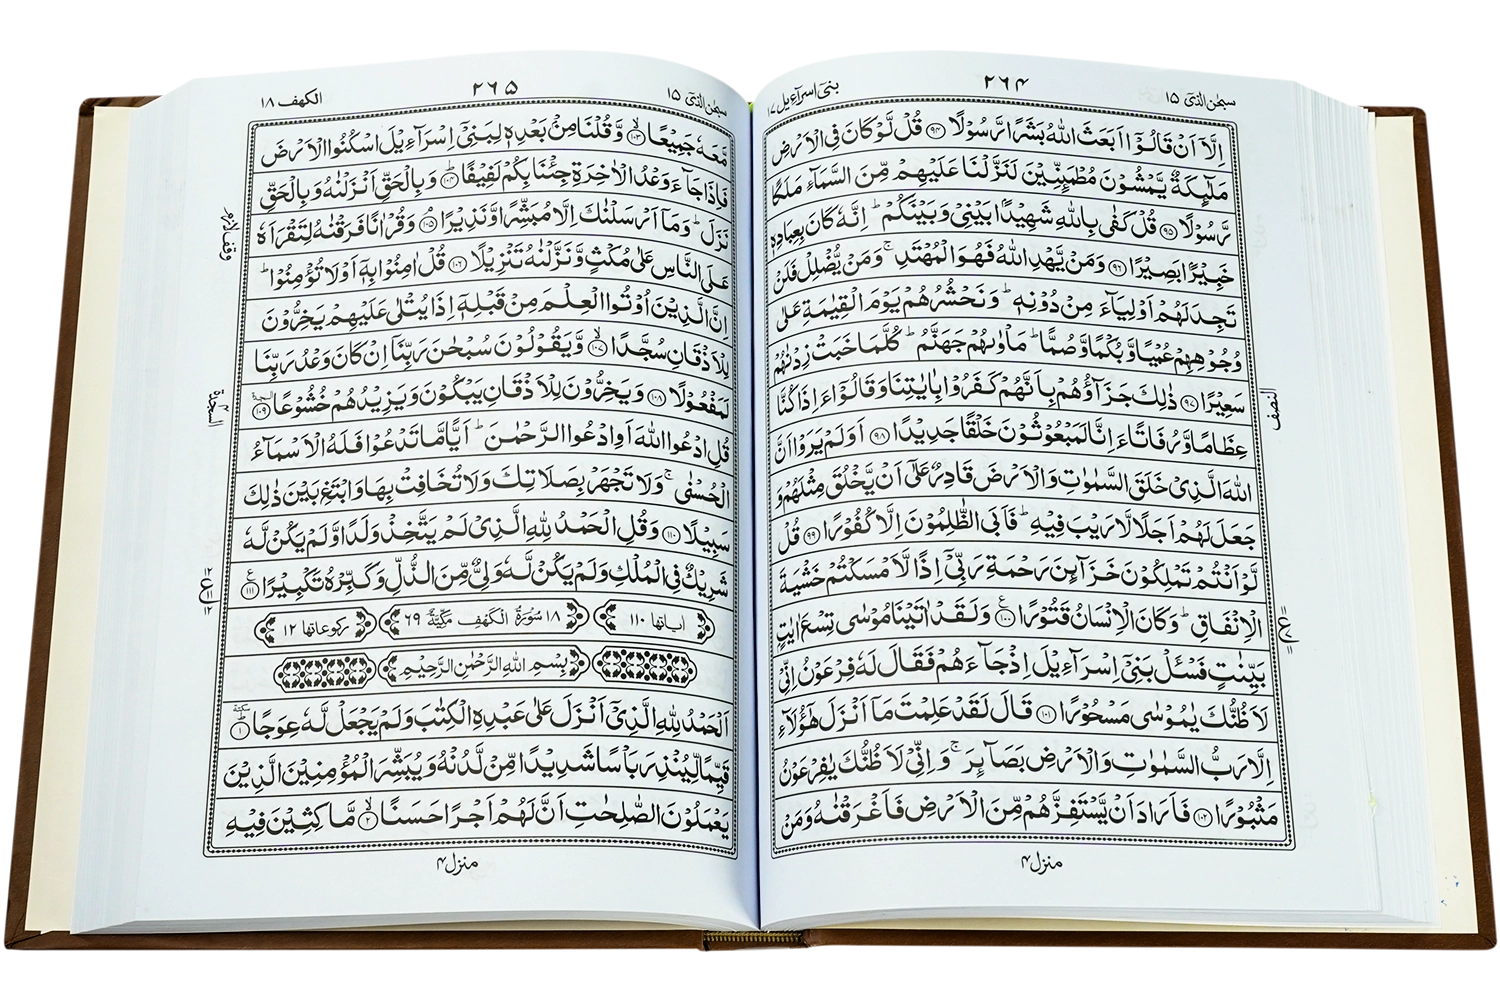 سبحٰن الذیٓ ۱۵
۲۶۴
بنیٓ اسرآءیل ۱۷
اِلَّاۤ اَنۡ قَالُوۡۤا اَبَعَثَ اللّٰهُ بَشَرًا رَّسُوۡلًا ﴿۹۴﴾ قُلۡ لَّوۡ كَانَ فِى الۡاَرۡضِ
مَلٰٓٮِٕكَةٌ يَّمۡشُوۡنَ مُطۡمَٮِٕنِّيۡنَ لَنَزَّلۡنَا عَلَيۡهِمۡ مِّنَ السَّمَآءِ مَلَكًا
رَّسُوۡلًا ﴿۹۵﴾ قُلۡ كَفٰى بِاللّٰهِ شَهِيۡدًۢا بَيۡنِىۡ وَبَيۡنَكُمۡ‌ؕ اِنَّهٗ كَانَ بِعِبَادِهٖ
خَبِيۡرًۢا بَصِيۡرًا ﴿۹۶﴾ وَمَنۡ يَّهۡدِ اللّٰهُ فَهُوَ الۡمُهۡتَدِ‌ۚ وَمَنۡ يُّضۡلِلۡ فَلَنۡ
تَجِدَ لَهُمۡ اَوۡلِيَآءَ مِنۡ دُوۡنِهٖ‌ؕ وَنَحۡشُرُهُمۡ يَوۡمَ الۡقِيٰمَةِ عَلٰى
وُجُوۡهِهِمۡ عُمۡيًا وَّبُكۡمًا وَّصُمًّا‌ؕ مَاۡوٰٮهُمۡ جَهَنَّمُ‌ؕ كُلَّمَا خَبَتۡ زِدۡنٰهُمۡ
سَعِيۡرًا ﴿۹۷﴾ ذٰلِكَ جَزَآؤُهُمۡ بِاَنَّهُمۡ كَفَرُوۡا بِاٰيٰتِنَا وَقَالُوۡۤا ءَاِذَا كُنَّا
عِظَامًا وَّرُفَاتًا ءَاِنَّا لَمَبۡعُوۡثُوۡنَ خَلۡقًا جَدِيۡدًا ﴿۹۸﴾ اَوَلَمۡ يَرَوۡا اَنَّ
اللّٰهَ الَّذِىۡ خَلَقَ السَّمٰوٰتِ وَالۡاَرۡضَ قَادِرٌ عَلٰٓى اَنۡ يَّخۡلُقَ مِثۡلَهُمۡ وَ
جَعَلَ لَهُمۡ اَجَلًا لَّا رَيۡبَ فِيۡهِ‌ؕ فَاَبَى الظّٰلِمُوۡنَ اِلَّا كُفُوۡرًا ﴿۹۹﴾ قُلْ
لَّوۡ اَنۡتُمۡ تَمۡلِكُوۡنَ خَزَآٮِٕنَ رَحۡمَةِ رَبِّىۡۤ اِذًا لَّاَمۡسَكۡتُمۡ خَشۡيَةَ
الۡاِنۡفَاقِ‌ؕ وَكَانَ الۡاِنۡسَانُ قَتُوۡرًا ﴿۱۰۰﴾ وَلَقَدۡ اٰتَيۡنَا مُوۡسٰى تِسۡعَ اٰيٰتٍۭ
بَيِّنٰتٍ‌ فَسۡـَٔـلۡ بَنِىۡۤ اِسۡرَآءِيۡلَ اِذۡ جَآءَهُمۡ فَقَالَ لَهٗ فِرۡعَوۡنُ اِنِّىۡ
لَاَظُنُّكَ يٰمُوۡسٰى مَسۡحُوۡرًا ﴿۱۰۱﴾ قَالَ لَقَدۡ عَلِمۡتَ مَاۤ اَنۡزَلَ هٰٓؤُلَاۤءِ
اِلَّا رَبُّ السَّمٰوٰتِ وَالۡاَرۡضِ بَصَآٮِٕرَ‌ۚ وَاِنِّىۡ لَاَظُنُّكَ يٰفِرۡعَوۡنُ
مَثۡبُوۡرًا ﴿۱۰۲﴾ فَاَرَادَ اَنۡ يَّسۡتَفِزَّهُمۡ مِّنَ الۡاَرۡضِ فَاَغۡرَقۡنٰهُ وَمَنۡ
النصف
منزل ۴
سبحٰن الذیٓ ۱۵
۲۶۵
الكهف ۱۸
مَّعَهٗ جَمِيۡعًا ۙ‏﴿۱۰۳﴾ وَّقُلۡنَا مِنۡۢ بَعۡدِهٖ لِبَنِىۡۤ اِسۡرَآءِيۡلَ اسۡكُنُوا الۡاَرۡضَ
فَاِذَا جَآءَ وَعۡدُ الۡاٰخِرَةِ جِئۡنَا بِكُمۡ لَفِيۡفًا ؕ‏﴿۱۰۴﴾ وَبِالۡحَـقِّ اَنۡزَلۡنٰهُ وَبِالۡحَـقِّ
نَزَلَ‌ؕ وَمَاۤ اَرۡسَلۡنٰكَ اِلَّا مُبَشِّرًا وَّنَذِيۡرًا ۘ‏﴿۱۰۵﴾ وَقُرۡاٰنًا فَرَقۡنٰهُ لِتَقۡرَاَهٗ
عَلَى النَّاسِ عَلٰى مُكۡثٍ وَّنَزَّلۡنٰهُ تَنۡزِيۡلًا ﴿۱۰۶﴾ قُلۡ اٰمِنُوۡا بِهٖۤ اَوۡ لَا تُؤۡمِنُوۡٓا‌ؕ
اِنَّ الَّذِيۡنَ اُوۡتُوا الۡعِلۡمَ مِنۡ قَبۡلِهٖۤ اِذَا يُتۡلٰى عَلَيۡهِمۡ يَخِرُّوۡنَ
لِلۡاَذۡقَانِ سُجَّدًا ۙ‏﴿۱۰۷﴾ وَّيَقُوۡلُوۡنَ سُبۡحٰنَ رَبِّنَاۤ اِنۡ كَانَ وَعۡدُ رَبِّنَا
لَمَفۡعُوۡلًا ﴿۱۰۸﴾ وَيَخِرُّوۡنَ لِلۡاَذۡقَانِ يَبۡكُوۡنَ وَيَزِيۡدُهُمۡ خُشُوۡعًا ﴿۱۰۹﴾
قُلِ ادۡعُوا اللّٰهَ اَوِ ادۡعُوا الرَّحۡمٰنَ‌ؕ اَيًّا مَّا تَدۡعُوۡا فَلَهُ الۡاَسۡمَآءُ
الۡحُسۡنٰى‌ۚ وَلَا تَجۡهَرۡ بِصَلَاتِكَ وَلَا تُخَافِتۡ بِهَا وَابۡتَغِ بَيۡنَ ذٰلِكَ
سَبِيۡلًا ﴿۱۱۰﴾ وَقُلِ الۡحَمۡدُ لِلّٰهِ الَّذِىۡ لَمۡ يَتَّخِذۡ وَلَدًا وَّلَمۡ يَكُنۡ لَّهٗ
شَرِيۡكٌ فِى الۡمُلۡكِ وَلَمۡ يَكُنۡ لَّهٗ وَلِىٌّ مِّنَ الذُّلِّ‌ وَكَبِّرۡهُ تَكۡبِيۡرًا ﴿۱۱۱﴾
اٰیاتها ۱۱۰ ۱۸ سُوۡرَةُ الۡكَهۡفِ مَكِّيَّةٌ ۶۹ رکوعاتها ۱۲
بِسۡمِ اللّٰهِ الرَّحۡمٰنِ الرَّحِيۡمِ
اَلۡحَمۡدُ لِلّٰهِ الَّذِىۡۤ اَنۡزَلَ عَلٰى عَبۡدِهِ الۡكِتٰبَ وَلَمۡ يَجۡعَلْ لَّهٗ عِوَجًا ؕ ﴿۱﴾
قَيِّمًا لِّيُنۡذِرَ بَاۡسًا شَدِيۡدًا مِّنۡ لَّدُنۡهُ وَيُبَشِّرَ الۡمُؤۡمِنِيۡنَ الَّذِيۡنَ
يَعۡمَلُوۡنَ الصّٰلِحٰتِ اَنَّ لَهُمۡ اَجۡرًا حَسَنًا ۙ‏﴿۲﴾ مَّاكِثِيۡنَ فِيۡهِ
وقف لازم
السجدة
منزل ۴